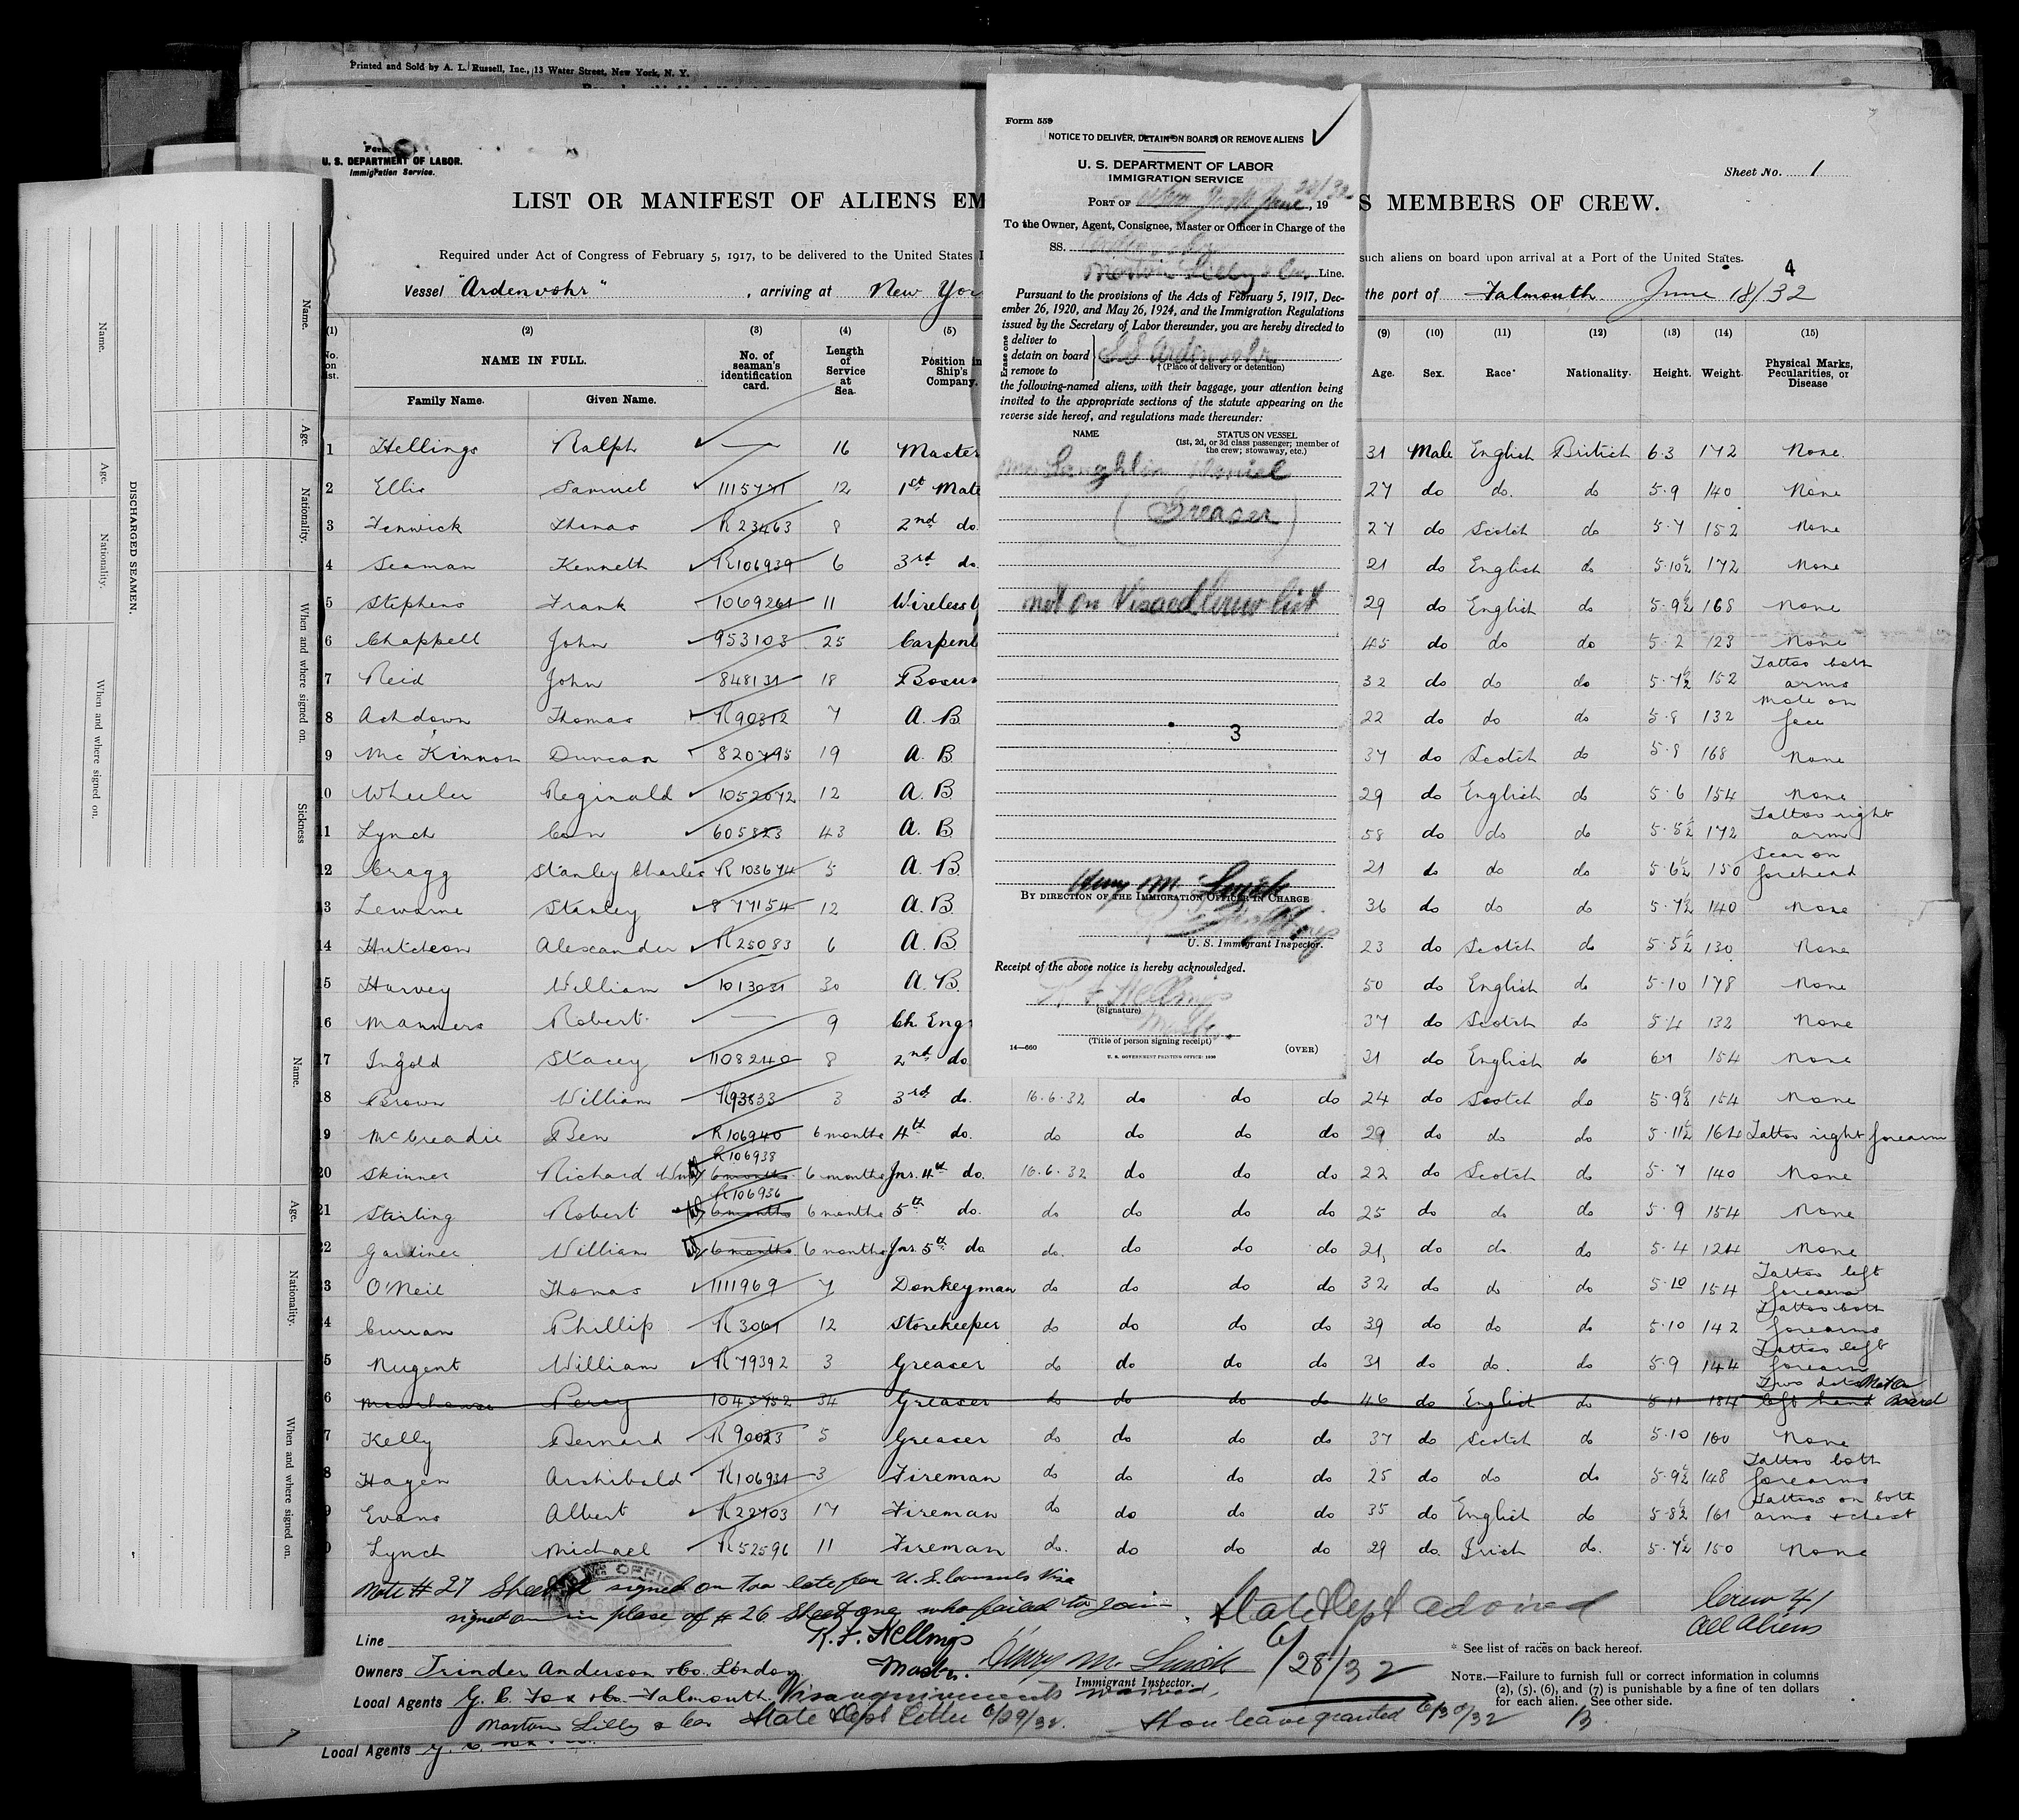 Printed and Sold by A. L. Russell, Inc., 13 Water Street, New York, N. Y.
Form
U. S. DEPARTMENT OF LABOR.
Immigration Service.
Sheet No. 1
LIST OR MANIFEST OF ALIENS EM
S MEMBERS OF CREW.
Required under Act of Congress of February 5, 1917, to be delivered to the United States I
such aliens on board upon arrival at a Port of the United States.
4
Vessel "Ardenvohr", arriving at New Yor
the port of Falmouth June 18/32
(1) (2) (3) (4) (5) (9) (10) (11) (12) (13) (14) (15)
No. on list. NAME IN FULL. Family Name. Given Name. No. of seaman's identification card. Length of Service at Sea. Position in Ship's Company. Age. Sex. Race* Nationality. Height. Weight. Physical Marks, Pecularities, or Disease
1 Hellings Ralph — 16 Master 31 Male English British 6.3 172 None.
2 Ellis Samuel 1115771 12 1st Mate 27 do do. do 5.9 140 None
3 Fenwick Thomas R 23463 8 2nd do. 27 do Scotch do 5.7 152 None
4 Seaman Kenneth R106939 6 3rd do. 21 do English do 5.10½ 172 None
5 Stephens Frank 1069261 11 Wireless 29 do English do 5.9½ 168 None
6 Chappell John 953103 25 Carpent 45 do do do 5.2 123 None
7 Reid John 848131 18 Bosun 32 do do do 5.7½ 152 Tattoo both arms
8 Ashdown Thomas R90312 7 A.B 22 do do do 5.8 132 Mole on face
9 McKinnon Duncan 820795 19 A.B. 37 do Scotch do 5.8 168 None
10 Wheeler Reginald 1052672 12 A.B. 29 do English do 5.6 154 None
11 Lynch Con 605823 43 A.B. 58 do do do 5.5½ 172 Tattoo right arm
12 Cragg Stanley Charles R103674 5 A.B. 21 do do do 5.6½ 150 Scar on forehead
13 Lewarne Stanley 877154 12 A.B. 36 do do do 5.7½ 140 None
14 Hutcheon Alexander R25083 6 A.B 23 do Scotch do 5.5½ 130 None
15 Harvey William 1013031 30 A.B. 50 do English do 5.10 178 None
16 Manners Robert — 9 Ch Engr 37 do Scotch do 5.4 132 None
17 Ingold Stacey 1108240 8 2nd do 31 do English do 6.1 154 None
18 Brown William R93833 3 3rd do. 16.6.32 do do do 24 do Scotch do 5.9½ 154 None
19 McCreadie Ben R106940 6 months 4th do. do do do do 29 do do do 5.11½ 164 Tattoo right forearm
20 Skinner Richard R106938 6 months 6 months Jnr. 4th do. 16.6.32 do do do 22 do Scotch do 5.7 140 None
21 Stirling Robert R106936 6 months 6 months 5th do. do do do do 25 do do do 5.9 154 None
22 Gardiner William 6 months 6 months Jnr. 5th do do. do do do 21 do do do 5.4 124 None
3 O'Neil Thomas 1111969 7 Donkeyman do do do do 32 do do do 5.10 154 Tattoo left forearm
4 Curran Phillip R3061 12 Storekeeper do do do do 39 do do do 5.10 142 Tattoo both forearms
5 Nugent William R79392 3 Greaser do do do do 31 do do. do 5.9 144 Tattoo left forearm
6 Percy 1045752 34 Greaser do do do do 46 do English do 5.11 184 Two dots left hand Not on Board
7 Kelly Bernard R90023 5 Greaser do do do do 37 do Scotch do 5.10 160 None
8 Hagen Archibald R106931 3 Fireman do do do do 25 do do do 5.9½ 148 Tattoo both forearms
9 Evans Albert R22703 17 Fireman do do do do 35 do English do 5.8½ 161 Tattoos on both arms & chest
0 Lynch Michael R52596 11 Fireman do. do do do 29 do. Irish do. 5.7½ 150 None
Note #27 Sheet 2 signed on too late for U.S. Consuls Visa
signed on in place of #26 Sheet one who failed to join.
State Dept advised
6/28/32
Crew 41
All Aliens
R. F. Hellings
Master.
Henry M.
Immigrant Inspector.
Line
Owners Trinder Anderson & Co. London.
Local Agents G. C. Fox & Co. Falmouth. Visa requirements waived,
Morton Lilly & Co State Dept letter 6/29/32.
Shore leave granted 6/30/32
* See list of races on back hereof.
NOTE.—Failure to furnish full or correct information in columns
(2), (5), (6), and (7) is punishable by a fine of ten dollars
for each alien. See other side.
Local Agents
Form 559
NOTICE TO DELIVER, DETAIN ON BOARD, OR REMOVE ALIENS
U. S. DEPARTMENT OF LABOR
IMMIGRATION SERVICE
PORT OF New York June 28/32, 19
To the Owner, Agent, Consignee, Master or Officer in Charge of the
SS. Ardenvohr
Morton Lilly & Co Line.
Pursuant to the provisions of the Acts of February 5, 1917, Dec-
ember 26, 1920, and May 26, 1924, and the Immigration Regulations
issued by the Secretary of Labor thereunder, you are hereby directed to
Erase one
deliver to
detain on board
remove to
SS Ardenvohr
† (Place of delivery or detention)
the following-named aliens, with their baggage, your attention being
invited to the appropriate sections of the statute appearing on the
reverse side hereof, and regulations made thereunder:
NAME
STATUS ON VESSEL
(1st, 2d, or 3d class passenger; member of
the crew; stowaway, etc.)
Laughlin Daniel
(Greaser)
not on Visaed Crew list
3
Henry M.
BY DIRECTION OF THE IMMIGRATION OFFICER IN CHARGE
U. S. Immigrant Inspector.
Receipt of the above notice is hereby acknowledged.
R. F. Hellings
(Signature)
Master.
(Title of person signing receipt)
14—660
U. S. GOVERNMENT PRINTING OFFICE: 1930
(OVER)
DISCHARGED SEAMEN.
Name.
Age.
Nationality.
When and where signed on.
Name.
Age.
Nationality.
When and where signed on.
Sickness
Name.
Age.
Nationality.
When and where signed on.